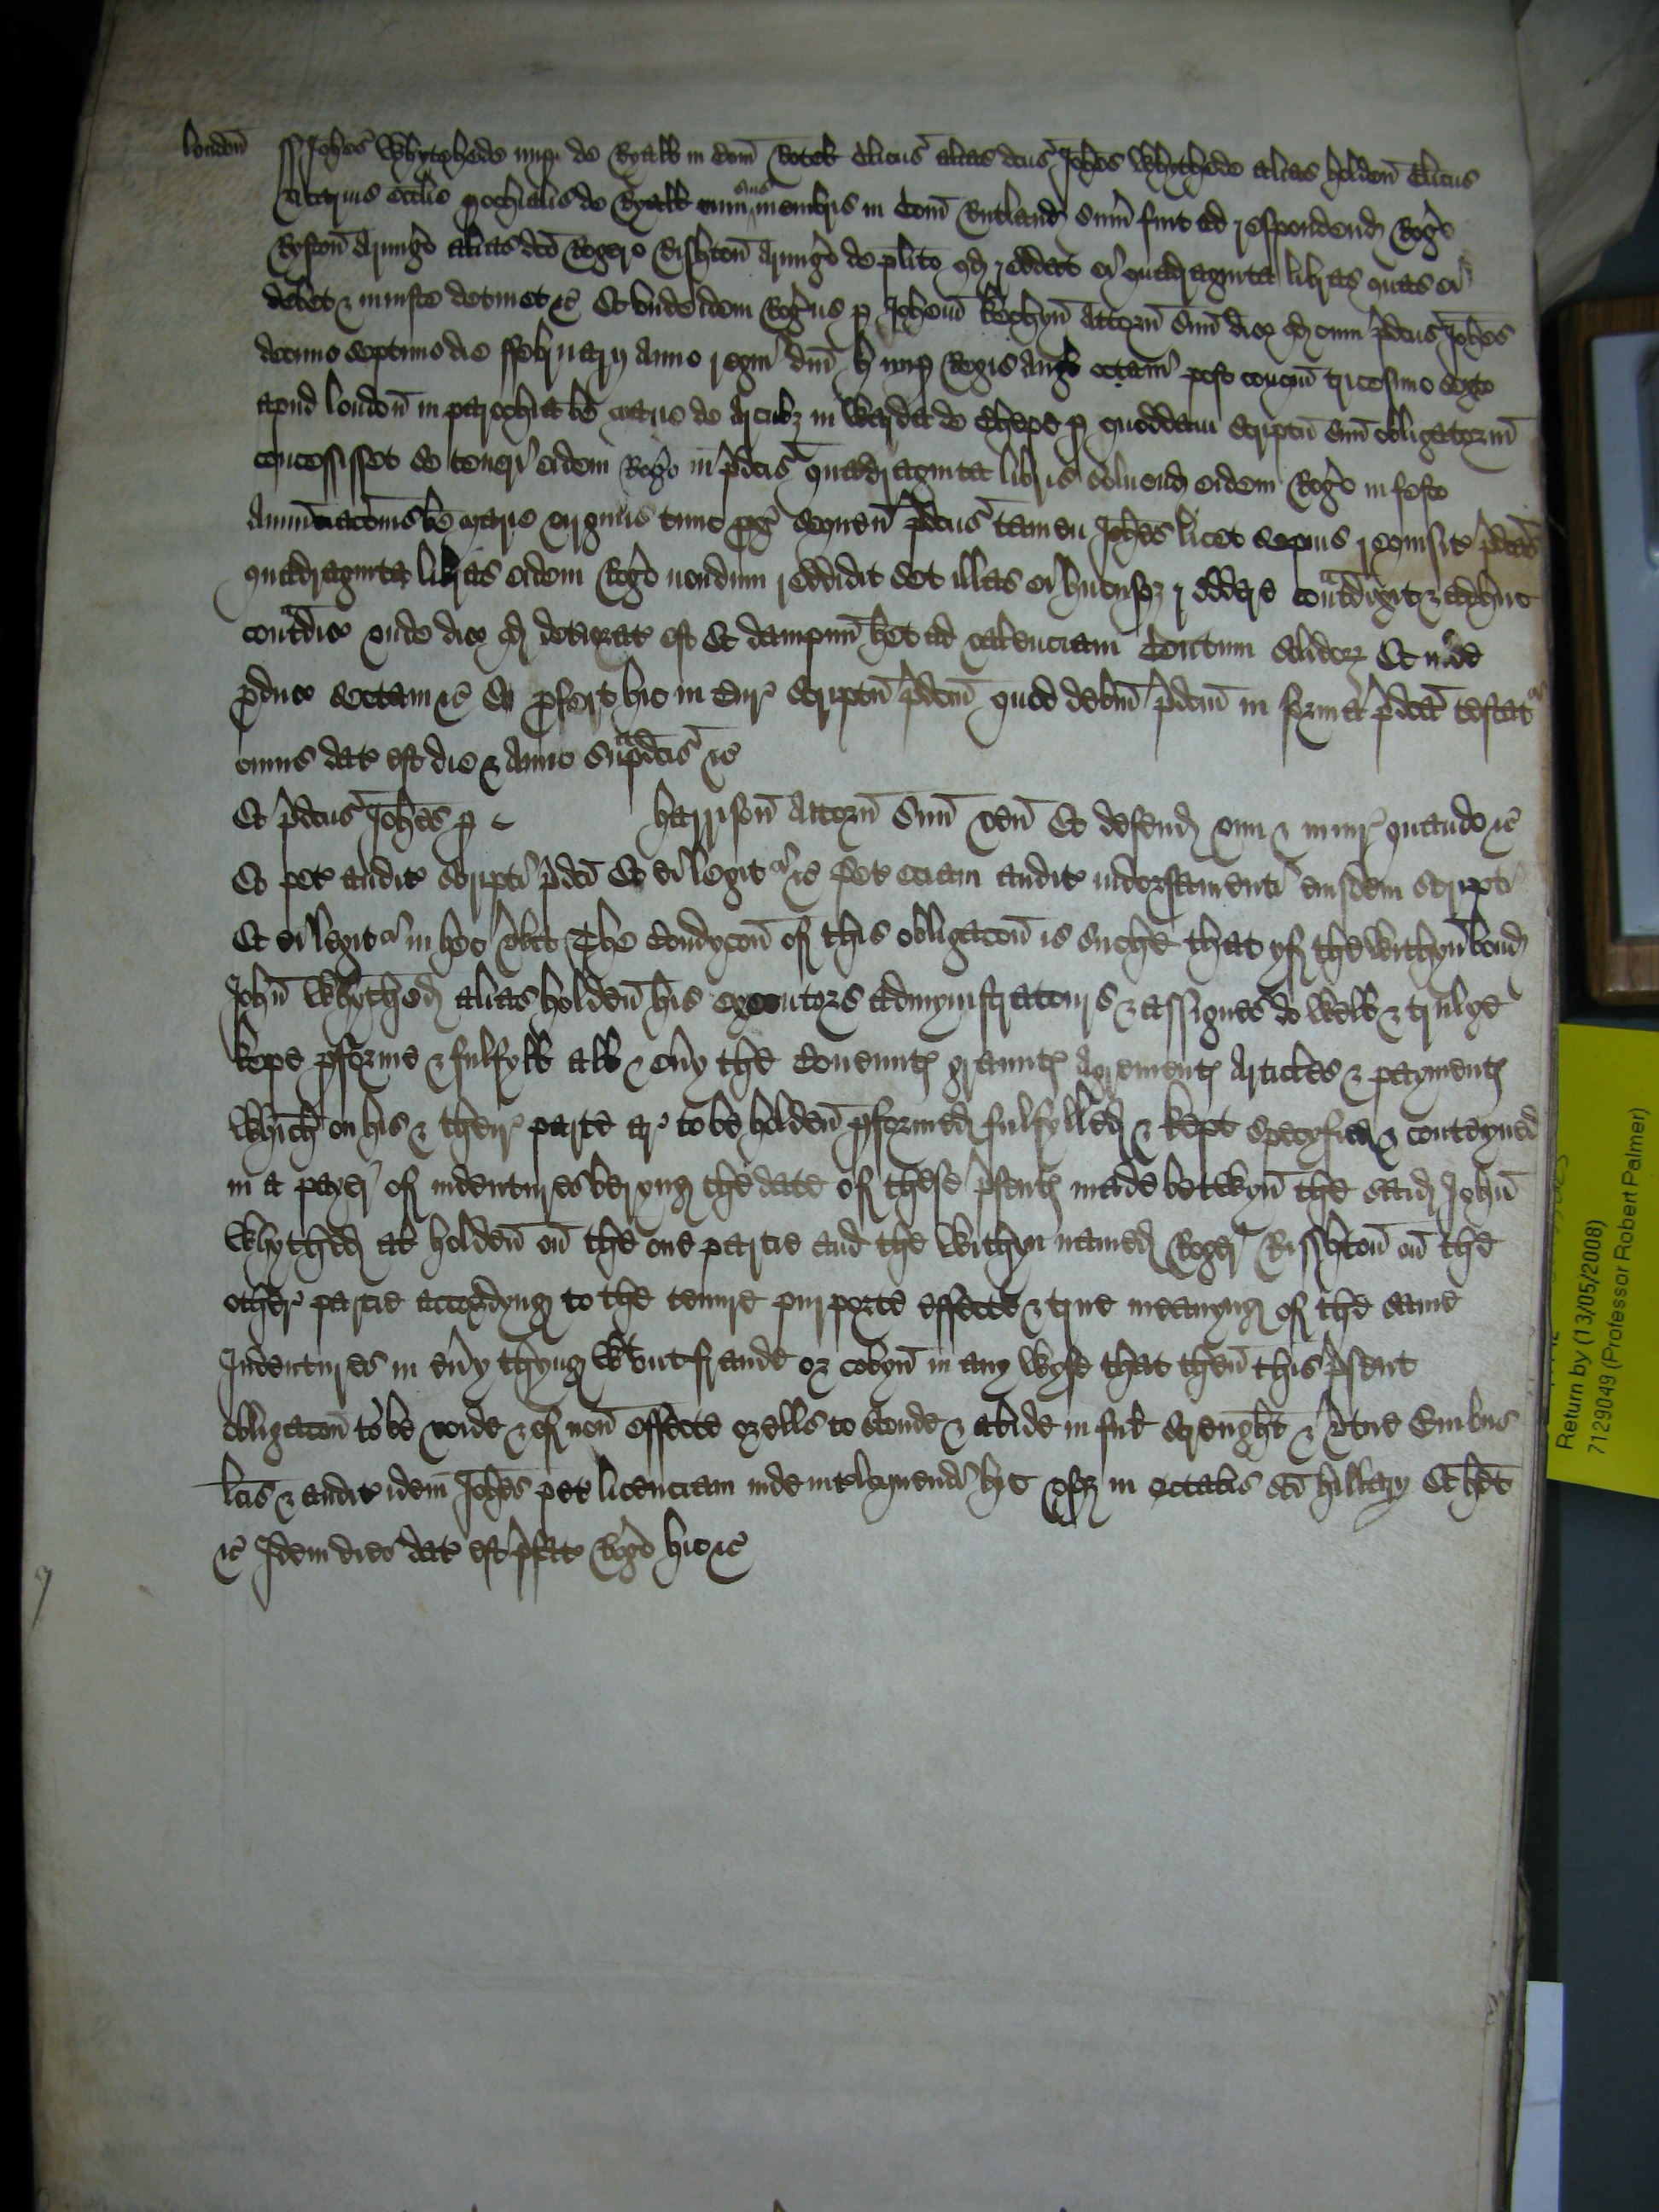 london̄ ss Joh̄es Whytehede nup de Ryall in Com̄ Rotel Clicus alias dcus Joh̄es Whythede alias holden̄ Clicus
vicarius eccl̄ie pochialis de Ryall cum suis membris in Com̄ Rutland sum̄ fuit ad respondend Rog̃o
Ryston̄ Armig̃o alias dc̄o Rogero Rishton̄ Armig̃o de pl̄ito qd reddat ei quadraginta libras quas ei
debet & iniuste detinet &c̄ Et unde idem Rog̃us p Joh̄em Kechyn̄ Attorn̄ suū dic̃ qd cum p̄dcus Joh̄es
decimo septimo die ffebruarij Anno regni dn̄i h nup Regis Angl octavi post conqm̄ tricesimo sexto
apud london̄ in parochia bē marie de Arcubȝ in Warda de Chepe p quoddam scriptū suū obligatoriū
concessisset se teneri eidem Rog̃o in p̄dcis quadraginta libris solvend eidem Rog̃o in festo
Annūciacōnis bē marie virginis tunc px̄ sequen̄ p̄dcus tamen Joh̄es licet sepius requisit p̄dcās
quadraginta libras eidem Rog̃o nondum reddidit set illas ei hucusqȝ reddere cont̃dixit & adhuc
cont̃dic̃ unde dic̃ qd deteriorat est Et dampnū h̄et ad valenciam Centum solidoȝ Et inde
pduc̃ sectam &c̄ Et pfert hic in Cur̃ scriptū p̄dcm̄ quod debm̄ p̄dcm̄ in forma p̄dcā testat̃
cuius dat est die & Anno sup̃dcis &c̄
Et p̄dcus Joh̄es p harrison̄ Attorn̄ suū ven̄ Et defend vim & iniur̃ quando &c̄
Et pet audit̃ scripti p̄dcī Et ei legit̃ &c̄ Pet eciam audit̃ indorsamenti eiusdem scripti
Et ei legit̃ in hec v̄ba The Condycōn of this obligacōn is suche that yf the withyn bound
John̄ Whythed alias holden̄ his executors admynystratours & assignes do well & trulye
kepe pforme & fulfyll all & ev̄y the Couenntes grauntes Agrementes Articles & paymentes
Which on his & their̃ parte ar̃ to be holden̄ pformed fulfylled & kept specyfied & conteyned
in a payer̃ of indentures beryng the date of these p̄sentes made betwyn̄ the said John̄
Whythed al̃ holden̄ on̄ the one partie and the withyn named Roger̃ Risshton̄ on̄ the
other̃ partie accordyng to the tenure purporte effecte & true meanyng of the same
Indentures in ev̄y thyng wtout fraude or covyn̄ in any wyse that then̄ this p̄sent
obligacōn to be voide & of non̄ effecte orells to stonde & abide in full strenght & v̄tue Quibus
lc̄is & audit̃ idem Joh̄es pet licenciam inde int̃loquendi hic usqȝ in octabis scī hillary Et h̄et
&c̄ Idem dies dat est p̄fat Rog̃o hic &c̄
Return by (13/05/2008)
7129049 (Professor Robert Palmer)